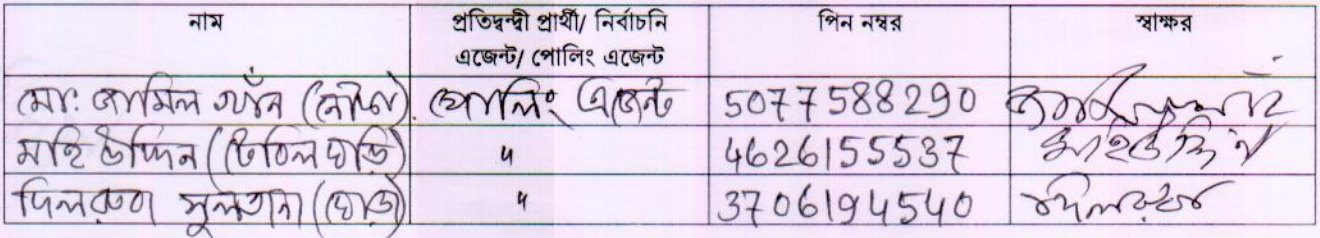 নাম প্রতিদ্বন্দ্বী প্রার্থী/ নির্বাচনি এজেন্ট/ পোলিং এজেন্ট পিন নম্বর স্বাক্ষর
মো: জামিল খাঁন (নৌকা) পোলিং এজেন্ট 5077588290
মহি উদ্দিন (টেবিল ঘড়ি) " 4626155537 মহিউদ্দিন
দিলরুবা সুলতানা (ঘড়ি) " 3706194540 দিলরুবা